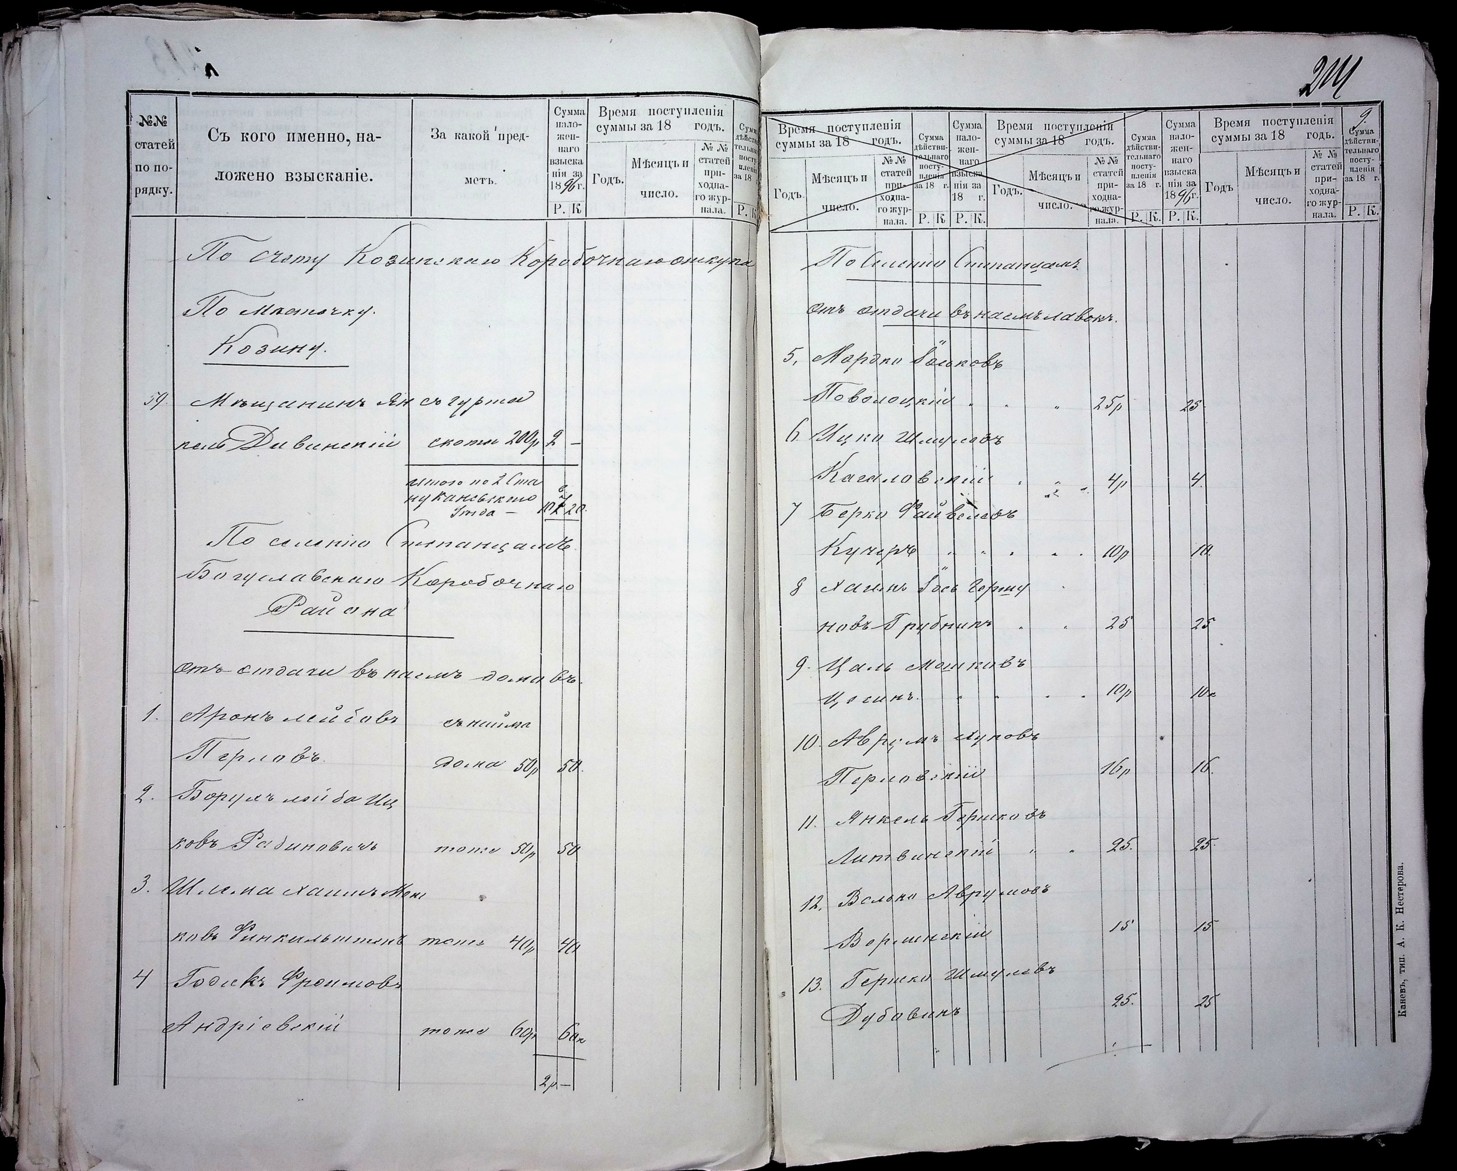 244
9.
№№ статей по порядку.
Съ кого именно, наложено взысканіе.
За какой предметъ.
Сумма наложеннаго взысканія за 1896 г.
Р. К.
Время поступленія суммы за 18 годъ.
Годъ.
Мѣсяцъ и число.
№№ статей приходнаго журнала.
Р. К.
По счету Козинскаго Коробочнаго откупа
По мѣстечку
Козину.
59 Мѣщанинъ Ян съ гурта
кель Дивинскій скота 200р 2 —
Итого по 2 Ста
ну Каневскаго
Уѣзда —
По селенію Степанцамъ
Богуславскаго Коробочнаго
Района
отъ отдачи въ наемъ домовъ.
1. Аронъ Лейбовъ съ найма
Перловъ дома 50р 50
2. Борухъ Лейба Иц
ковъ Рабиновичъ тоже 50р 50
3. Шлема Хаимъ Мош
ковъ Финкильштенъ тоже 40р 40
4 Годикъ Фроимовъ
Андріевскій тоже 60р 60к
2р. —
Время поступленія суммы за 18 годъ.
Годъ.
Мѣсяцъ и число.
№№ статей приходнаго журнала.
Сумма дѣйствительнаго поступленія за 18 г.
Р. К
Сумма наложеннаго взысканія за 18 г.
Р. К.
Время поступленія суммы за 18 годъ.
Годъ.
Мѣсяцъ и число.
№№ статей приходнаго журнала.
Сумма дѣйствительнаго поступленія за 18 г.
Р. К.
Сумма наложеннаго взысканія за 1896 г.
Р. К.
Время поступленія суммы за 18 годъ.
Годъ.
Мѣсяцъ и число.
№№ статей приходнаго журнала.
Сумма дѣйствительнаго поступленія за 18 г.
Р. К.
По Селенію Степанцамъ
отъ отдачи въ наемъ лавокъ.
5, Мордко Іоськовъ
Поволоцкій 25р 25
6 Ицко Шмулевъ
Кагаловскій 4р 4
7 Берко Файвелевъ
Кучеръ 10р 10
8 Хаимъ Іось Гершу
новъ Трубникъ 25 25
9. Цаль Мошковъ
Цесинъ 10р 10к
10. Аврумъ Нуховъ
Перловскій 16р 16.
11. Янкель Гершковъ
Литвинскій 25. 25
12. Волько Аврумовъ
Воршнскій 15 15
13. Гершко Шмулевъ
Дубовикъ 25. 25
Каневъ, тип. А. К. Нестерова.